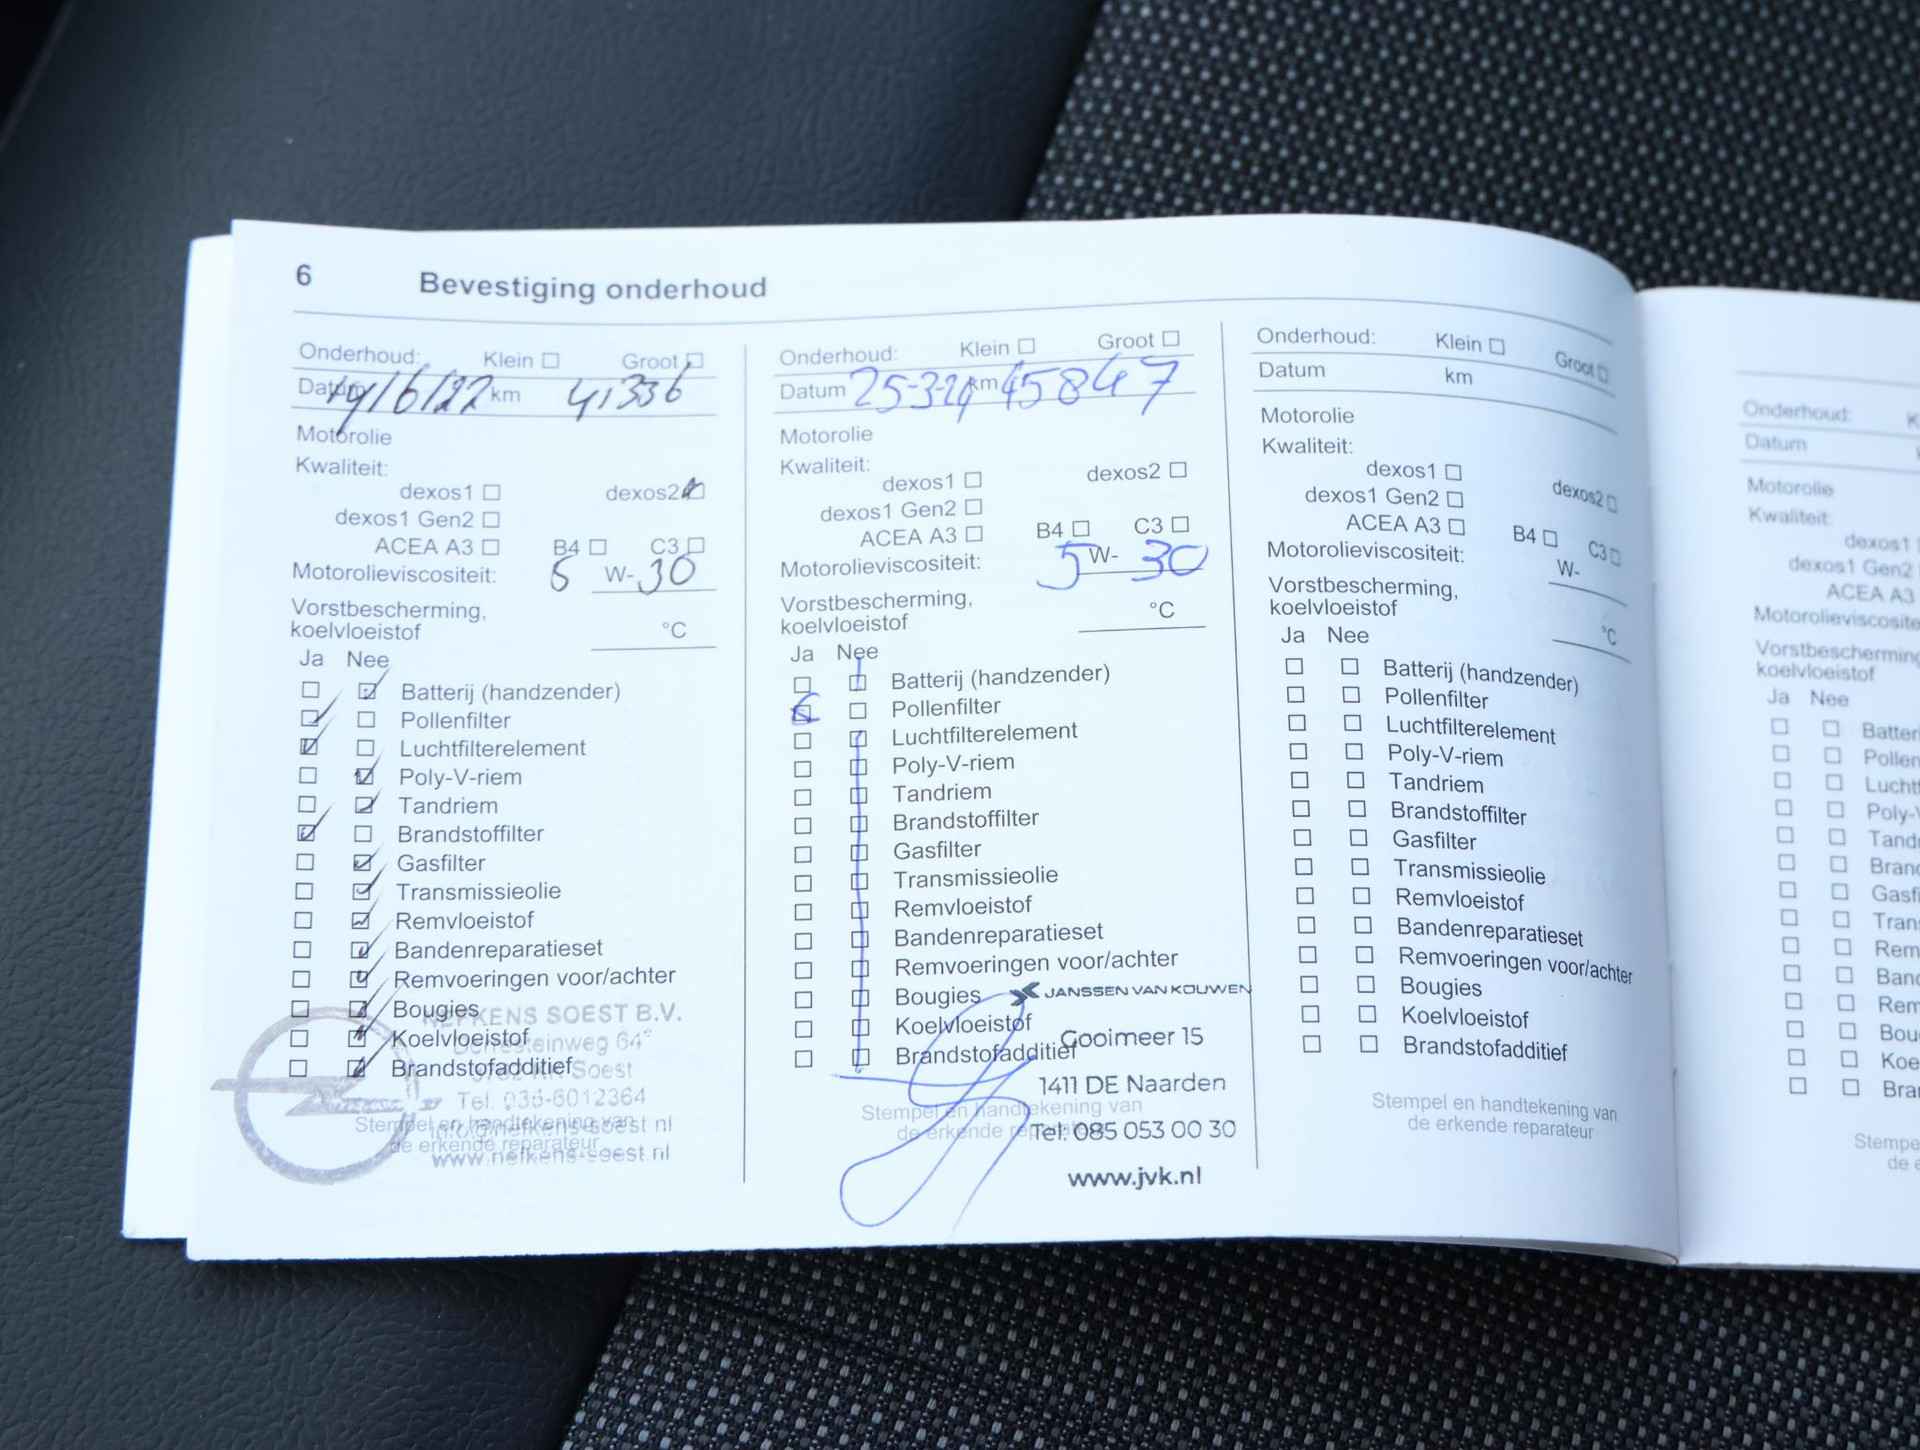 6 Bevestiging onderhoud
Onderhoud: Klein Groot
Datum 14/6/22 km 41336
Motorolie
Kwaliteit:
dexos1 dexos2
dexos1 Gen2
ACEA A3 B4 C3
Motorolieviscositeit: 5 W- 30
Vorstbescherming,
koelvloeistof °C
Ja Nee
Batterij (handzender)
Pollenfilter
Luchtfilterelement
Poly-V-riem
Tandriem
Brandstoffilter
Gasfilter
Transmissieolie
Remvloeistof
Bandenreparatieset
Remvoeringen voor/achter
Bougies
Koelvloeistof
Brandstofadditief
Stempel en handtekening van
de erkende reparateur
NEFKENS SOEST B.V.
Soest
Tel. 036-6012364
info@nefkens-soest.nl
www.nefkens-soest.nl
Onderhoud: Klein Groot
Datum 25-3-24 km 45847
Motorolie
Kwaliteit:
dexos1 dexos2
dexos1 Gen2
ACEA A3 B4 C3
Motorolieviscositeit: 5 W- 30
Vorstbescherming,
koelvloeistof °C
Ja Nee
Batterij (handzender)
Pollenfilter
Luchtfilterelement
Poly-V-riem
Tandriem
Brandstoffilter
Gasfilter
Transmissieolie
Remvloeistof
Bandenreparatieset
Remvoeringen voor/achter
Bougies
Koelvloeistof
Brandstofadditief
Stempel en handtekening van
de erkende reparateur
JANSSEN VAN KOUWEN
Gooimeer 15
1411 DE Naarden
Tel: 085 053 00 30
www.jvk.nl
Onderhoud: Klein Groot
Datum km
Motorolie
Kwaliteit:
dexos1 dexos2
dexos1 Gen2
ACEA A3 B4 C3
Motorolieviscositeit: W-
Vorstbescherming,
koelvloeistof °C
Ja Nee
Batterij (handzender)
Pollenfilter
Luchtfilterelement
Poly-V-riem
Tandriem
Brandstoffilter
Gasfilter
Transmissieolie
Remvloeistof
Bandenreparatieset
Remvoeringen voor/achter
Bougies
Koelvloeistof
Brandstofadditief
Stempel en handtekening van
de erkende reparateur
Onderhoud: K
Datum
Motorolie
Kwaliteit:
dexos1
dexos1 Gen2
ACEA A3
Motorolieviscosite
Vorstbescherming
koelvloeistof
Ja Nee
Batteri
Pollen
Lucht
Poly-V
Tandr
Brand
Gasfi
Trans
Rem
Band
Rem
Bou
Koe
Bra
Stempe
de e